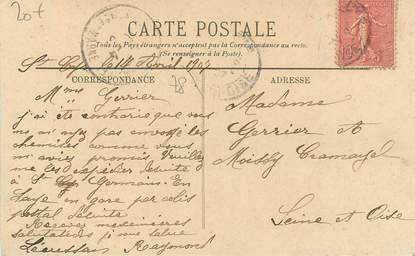 20f
CARTE POSTALE
Tous les Pays étrangers n'acceptent pas la Correspondance au recto.
(Se renseigner à la Poste).
St Cyr le 14 Avril 1907
CORRESPONDANCE
78
ADRESSE
Mme Gerrier
j'ai été contrarié que vous
ne m'ayes pas envoyé les
chemises comme vous
m'avies promis Veuillez
me les expédier de suite
à St Germain-En
Laye en gare par colis
postal de suite
Recevez mes sincères
salutations je vous salue
Raymond
Madame
Gerrier A
Moissy Cramayel
Seine et Oise